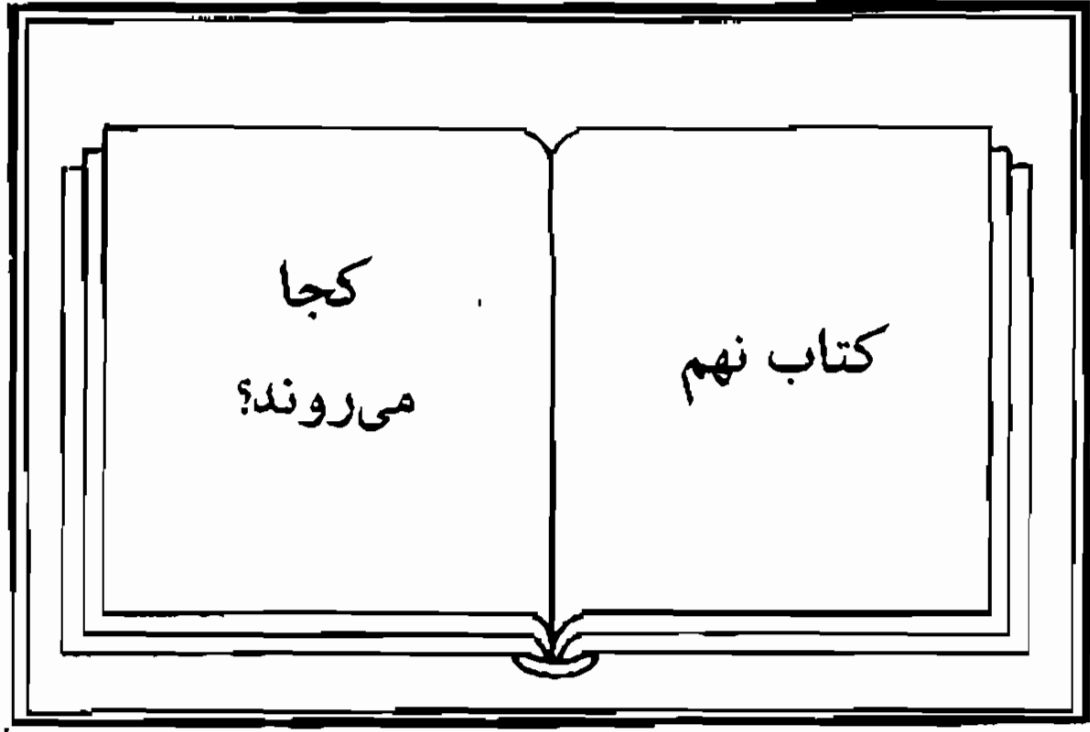 کتاب نهم
کجا
می‌روند؟